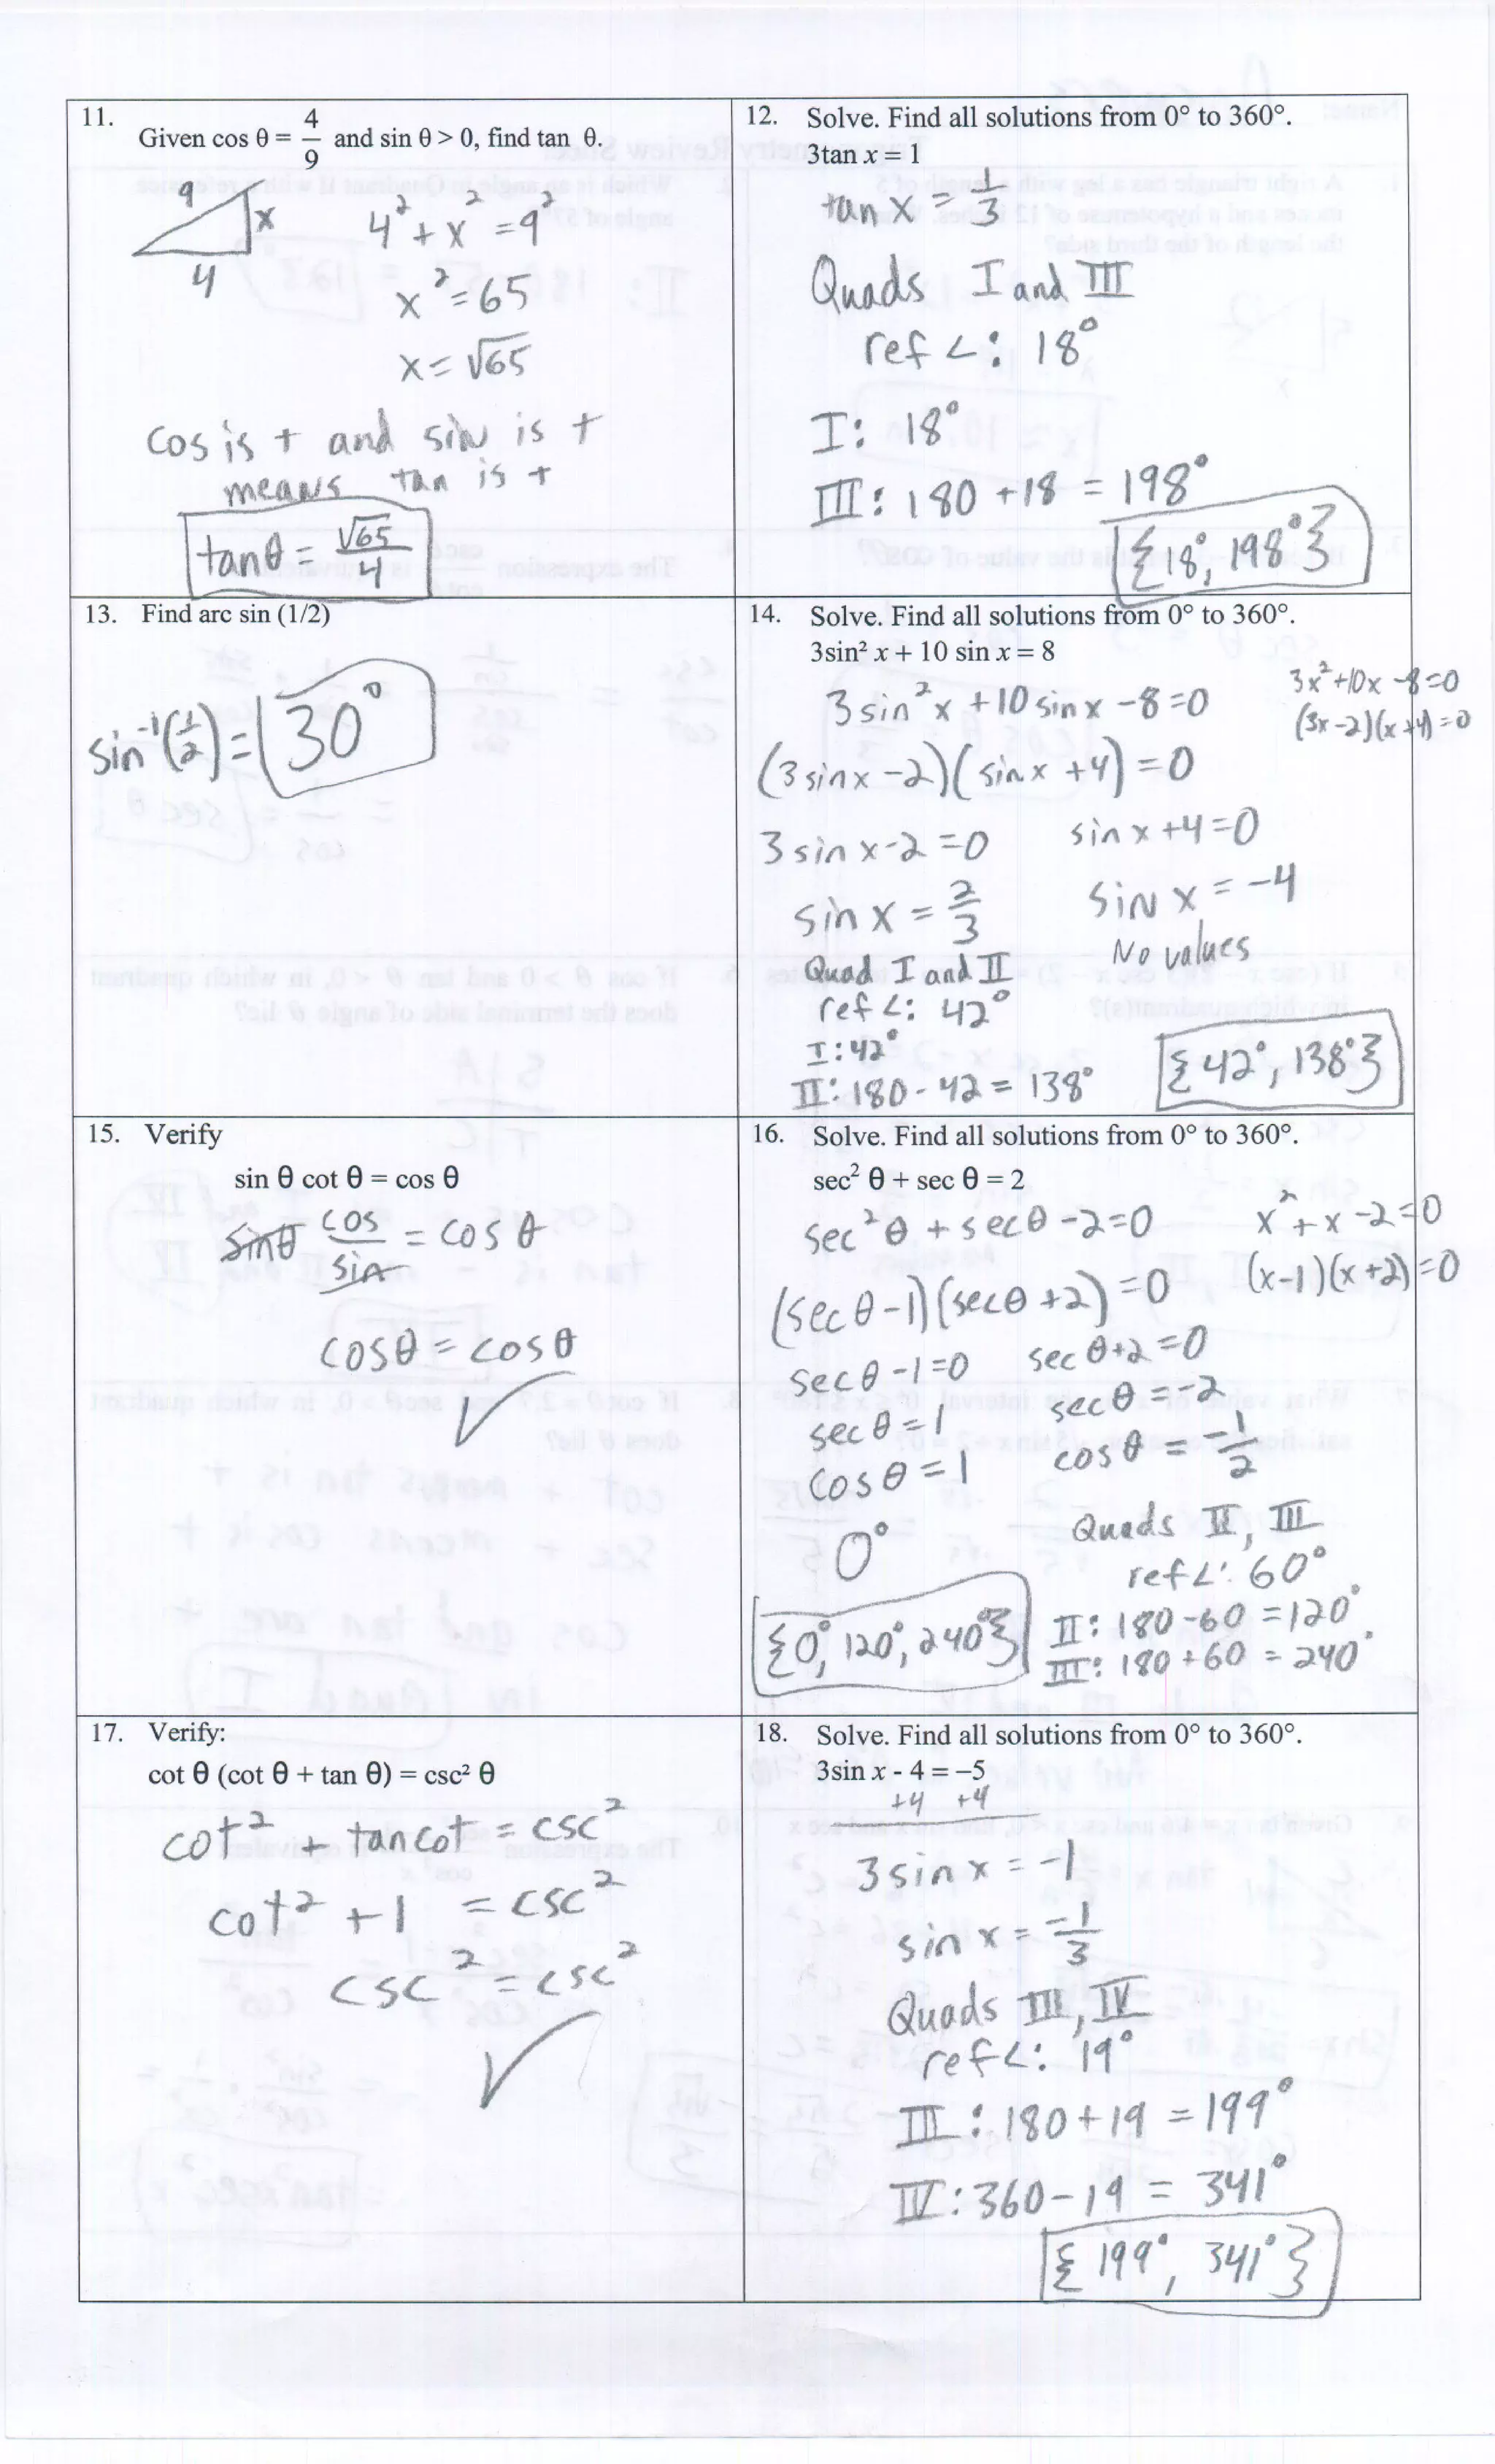 11.
Given cos θ = 4/9 and sin θ > 0, find tan θ.
9
x
4
4² + x² = 9²
x² = 65
x = √65
cos is + and sin is +
means tan is +
tanθ = √65/4
12. Solve. Find all solutions from 0° to 360°.
3tan x = 1
tan x = 1/3
Quads I and III
ref ∠: 18°
I: 18°
III: 180 + 18 = 198°
{18°, 198°}
13. Find arc sin (1/2)
sin⁻¹(1/2) = 30°
14. Solve. Find all solutions from 0° to 360°.
3sin² x + 10 sin x = 8
3 sin² x + 10 sin x - 8 = 0
3x² + 10x - 8 = 0
(3x - 2)(x + 4) = 0
(3 sin x - 2)(sin x + 4) = 0
3 sin x - 2 = 0
sin x + 4 = 0
sin x = 2/3
sin x = -4
No values
Quad I and II
ref ∠: 42°
I: 42°
II: 180 - 42 = 138°
{42°, 138°}
15. Verify
sin θ cot θ = cos θ
sinθ cos/sin = cos θ
cosθ = cos θ
✓
16. Solve. Find all solutions from 0° to 360°.
sec² θ + sec θ = 2
sec² θ + sec θ - 2 = 0
x² + x - 2 = 0
(x - 1)(x + 2) = 0
(sec θ - 1)(sec θ + 2) = 0
sec θ - 1 = 0
sec θ + 2 = 0
sec θ = 1
sec θ = -2
cos θ = 1
cos θ = -1/2
0°
Quads II, III
ref ∠: 60°
II: 180 - 60 = 120°
III: 180 + 60 = 240°
{0°, 120°, 240°}
17. Verify:
cot θ (cot θ + tan θ) = csc² θ
cot² + tan cot = csc²
cot² + 1 = csc²
csc² = csc²
✓
18. Solve. Find all solutions from 0° to 360°.
3sin x - 4 = –5
+4 +4
3 sin x = -1
sin x = -1/3
Quads III, IV
ref ∠: 19°
III: 180 + 19 = 199°
IV: 360 - 19 = 341°
{199°, 341°}